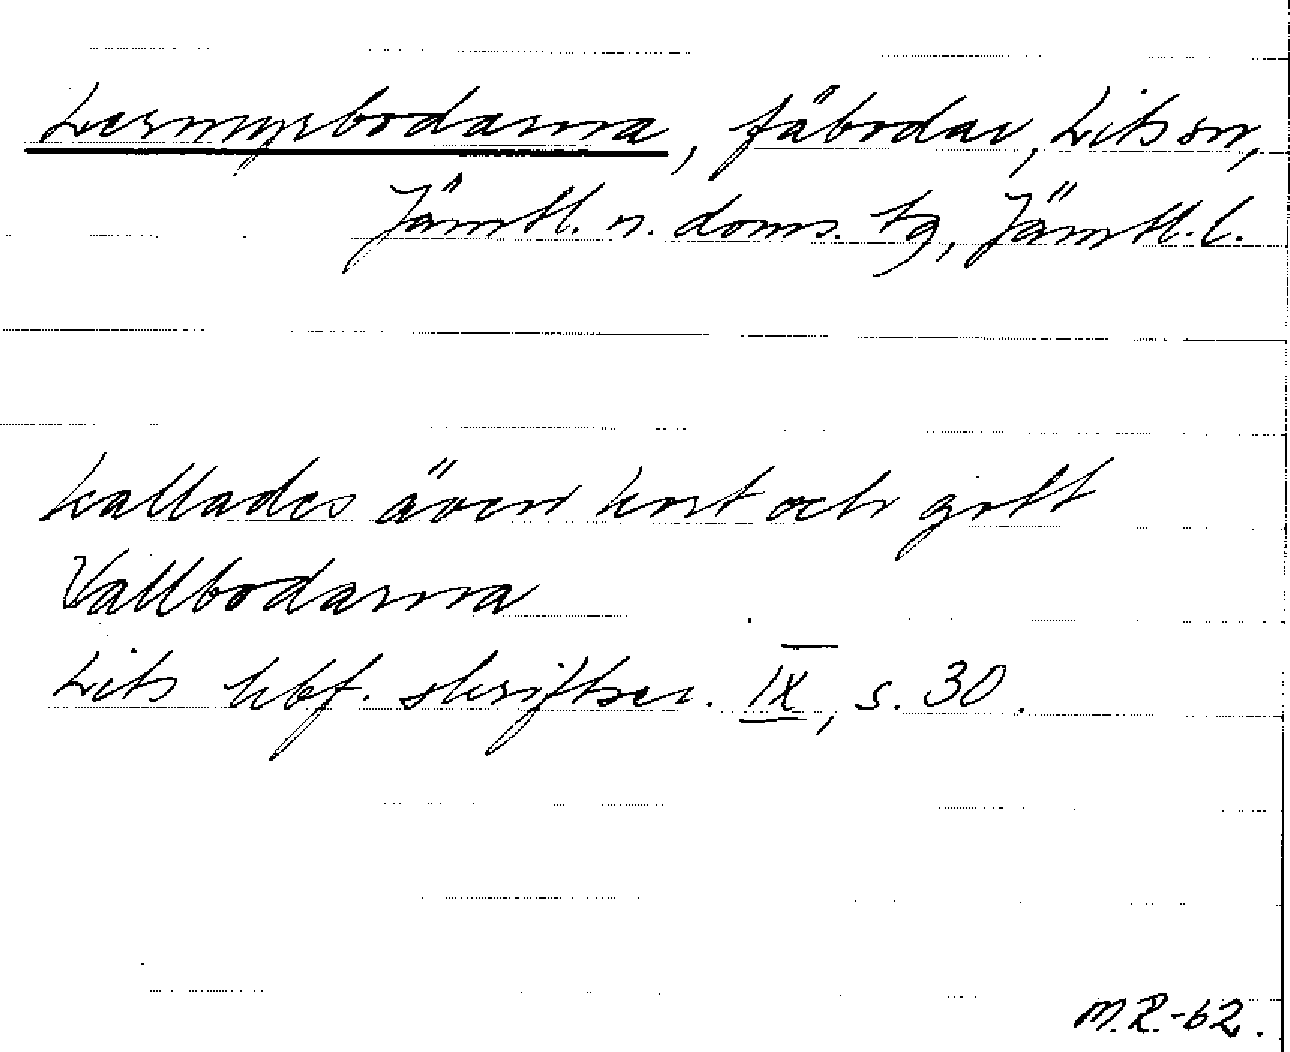 Lermyrbodarna, fäbodar, Lits sn,
Jämtl. n. doms. tg, Jämtl. l.
kallades även kort och gott
Vallbodarna
Lits hbf. skriftser. IX, s. 30.
M.R.-62.